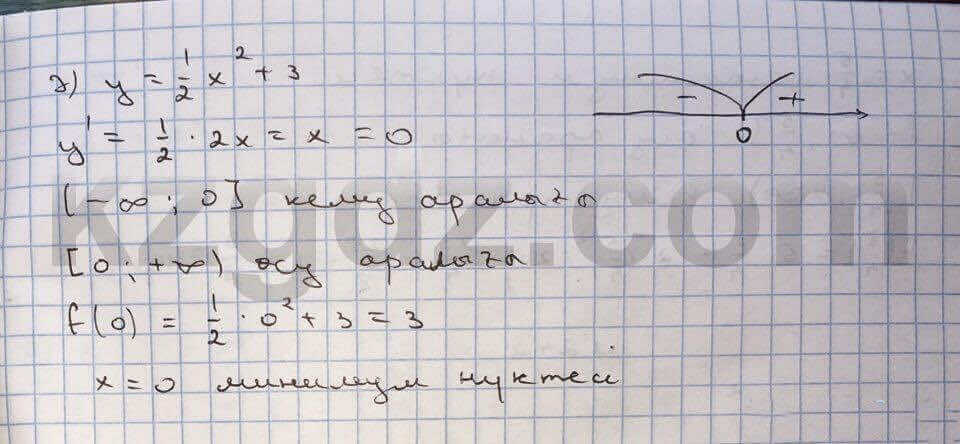 2) y = 1/2 x² + 3
- +
0
y' = 1/2 · 2x = x = 0
[-∞; 0] кему аралығы
[0; +∞) осу аралығы
f(0) = 1/2 · 0² + 3 = 3
x = 0 минимум нуктесі
kzgdz.com